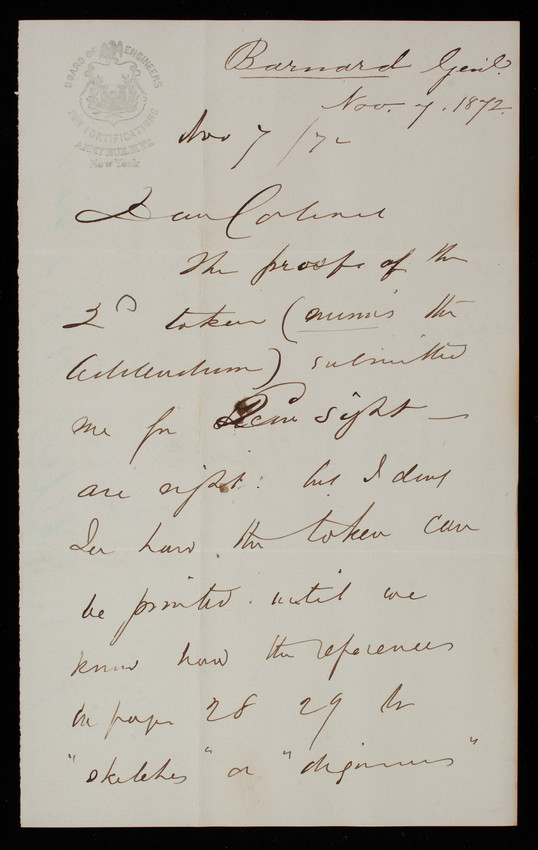 BOARD OF ENGINEERS
FOR FORTIFICATIONS
ARMY BUILDING
New York
Barnard Genl.
Nov. 7. 1872.
Nov 7 /72
Dear Colonel
The proofs of the
2d token (minus the
Addendum) submitted
me for sight —
are right: but I dont
see how the token can
be printed until we
know how the references
on page 28 29 to
"sketches" or "diagrams"